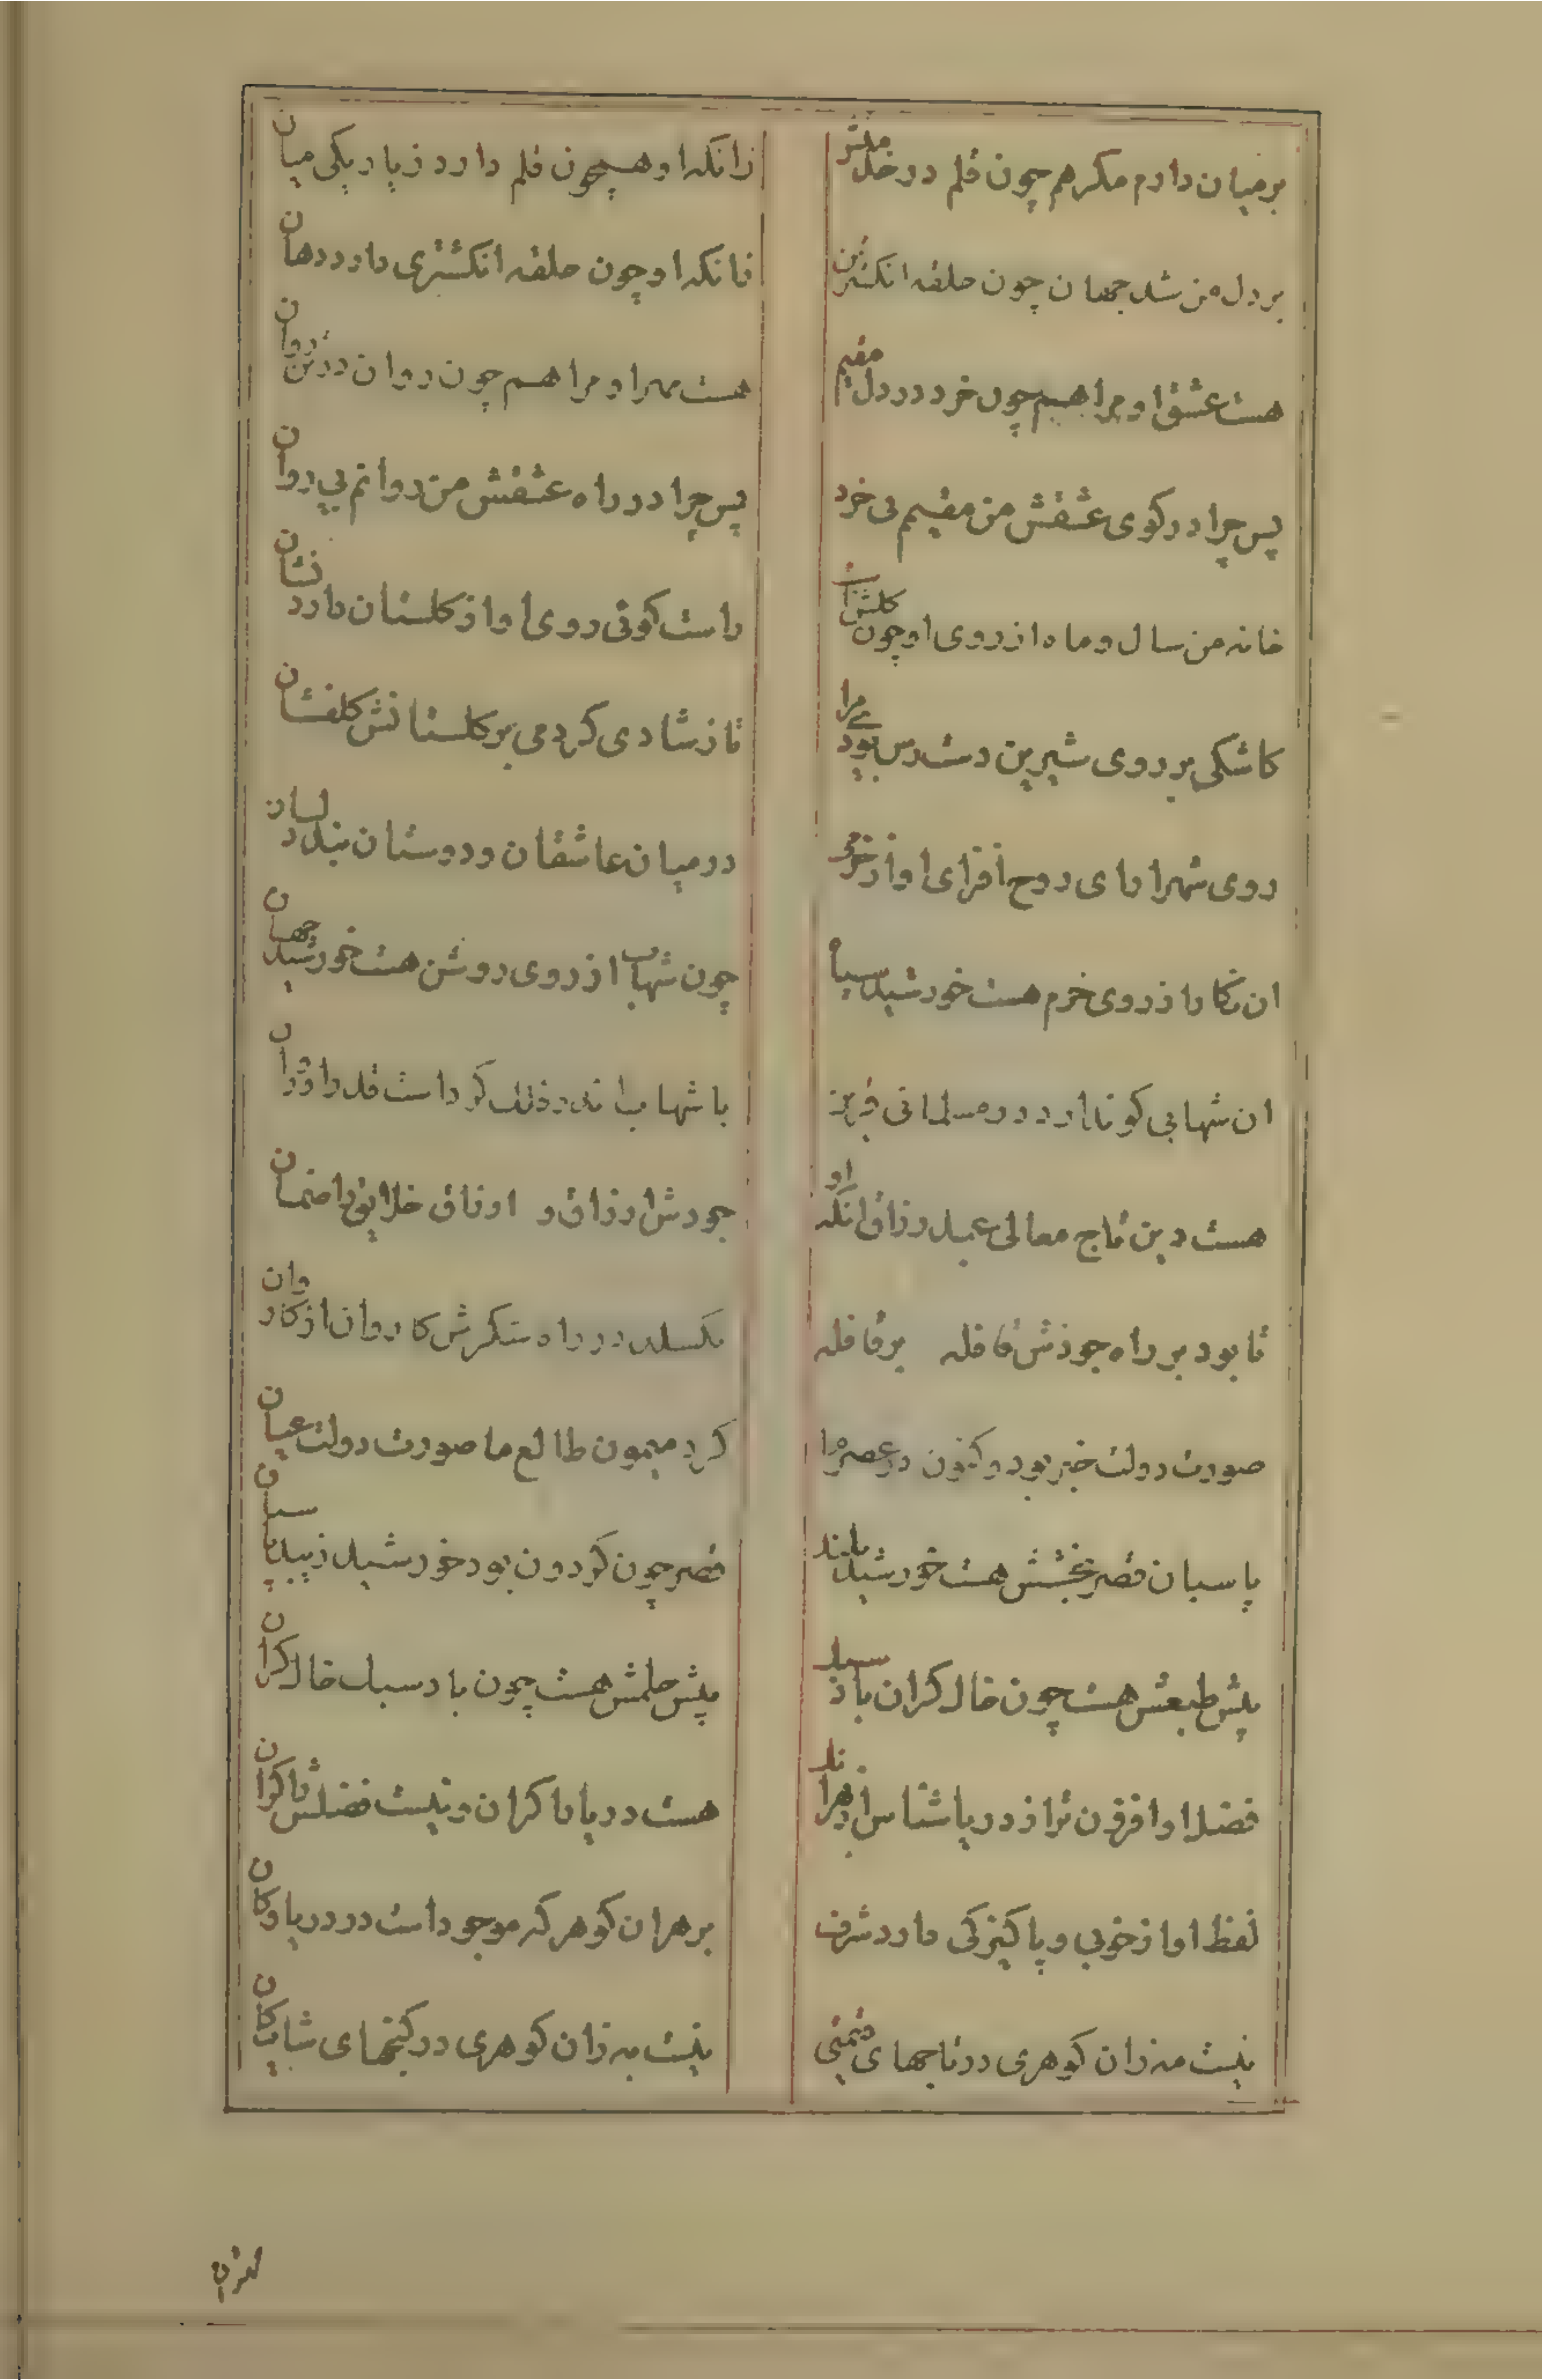 بر میان دارم مکر هم چون قلم در خدمتش
زانکه او همچون قلم دارد ز باریکی میان
بر دل من شد جهان چون حلقه انکشترین
زانکه او چون حلقه انکشتری دارد دهان
هست عشق او مرا همچون خرد در دل مقیم
هست مهر او مرا همچون روان در تن روان
پس چرا در کوی عشقش من مقیم بی خرد
پس چرا در راه عشقش من روانم بی روان
خانه من سال و ماه از روی او چون کلشن است
راست کوئی روی او از کلستان دارد نشان
کاشکی بر روی شیرین دست رس بودی مرا
تا ز شادی کردمی بر کلستانش کلفشان
روی شهرارای روح افزای او از خرمی
در میان عاشقان و دوستان
ان نکار از روی خرم هست خورشید سپاه
چون شهاب از روی روشن هست خورشید جهان
ان شهابی کو ندارد در مسلمانی قرین
با شهاب اندر فلک کرد است قدر او قران
هست دین تاج معالی عمید رزاق انکه او
جودش ارزاق و اوفاق خلایق را ضمان
تا بود بر راه جودش قافله بر قافله
نکسلد در راه شکرش کاروان از کاروان
صورت دولت خبر بود و کنون در عصر ما
کرد میمون طالع ما صورت دولت عیان
پاسبان قصر بختش هست خورشید بلند
قصر چون کردون بود خورشید زیبد پاسبان
پیش طبعش هست چون خاک کران باد سبک
پیش حلمش هست چون باد سبک خاک کران
فضل او افزون تر از دریا شناس ازیرا
هست دریا با کران و نیست فضلش را کران
لفظ او از خوبی و پاکیزکی دارد شرف
بر هر ان کوهر که موجود است در دریا و کان
نیست به زان کوهری در تاجهای قیمتی
نیست به زان کوهری در کنجهای شایکان